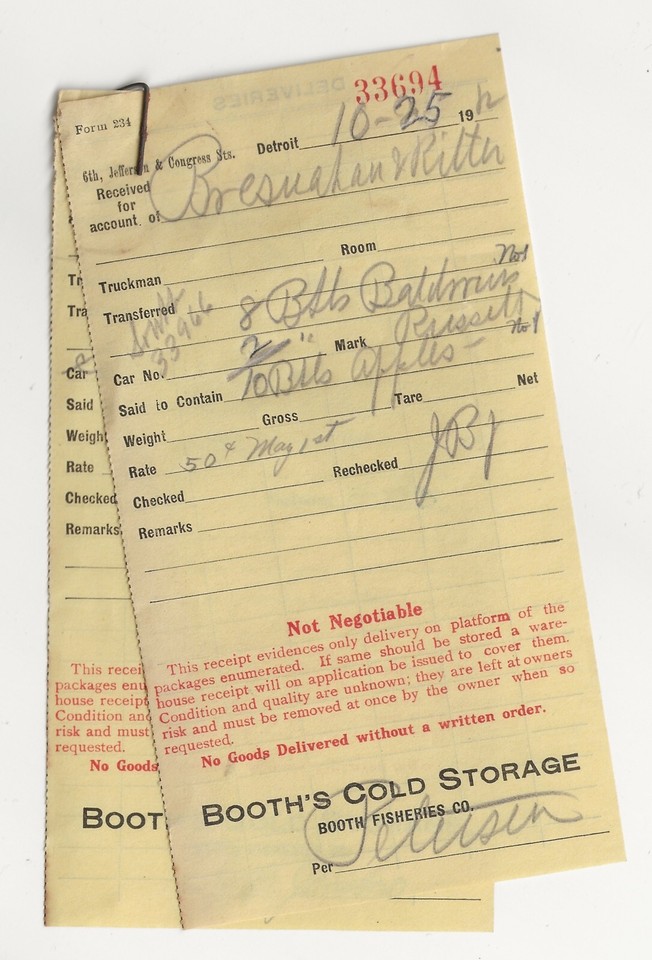 33694
Form 234
Detroit 10-25 1912
6th, Jefferson & Congress Sts.
Received
for
account of Bresnahan & Ritter
Room
Truckman
Transferred 8 Bbls Baldwins No1
33966
2 " Russett No1
Car No. Mark
Said to Contain 10 Bbls apples
Weight Gross Tare Net
Rate 50¢ May 1st
Checked Rechecked JBJ
Remarks
Not Negotiable
This receipt evidences only delivery on platform of the
packages enumerated. If same should be stored a ware-
house receipt will on application be issued to cover them.
Condition and quality are unknown; they are left at owners
risk and must be removed at once by the owner when so
requested.
No Goods Delivered without a written order.
BOOTH'S COLD STORAGE
BOOTH FISHERIES CO.
Per Petersen
Tr
Tra
Car
Said
Weigh
Rate
Checked
Remarks
This recei
packages enu
house receip
Condition and
risk and must
requested.
No Goods
BOOT